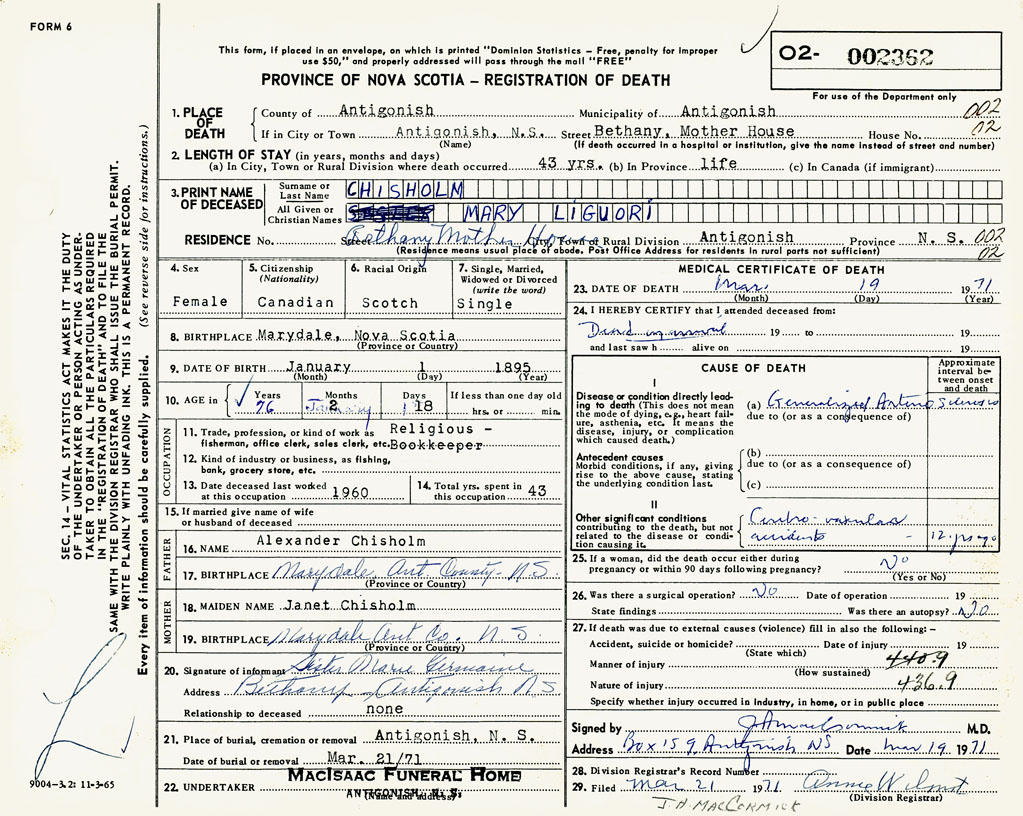 FORM 6
This form, if placed in an envelope, on which is printed "Dominion Statistics – Free, penalty for improper
use $50," and properly addressed will pass through the mail "FREE"
PROVINCE OF NOVA SCOTIA – REGISTRATION OF DEATH
O2- 002362
For use of the Department only
1. PLACE OF DEATH County of Antigonish Municipality of Antigonish 002
If in City or Town Antigonish, N.S. Street Bethany, Mother House House No. 02
(Name) (If death occurred in a hospital or institution, give the name instead of street and number)
2. LENGTH OF STAY (in years, months and days)
(a) In City, Town or Rural Division where death occurred 43 yrs. (b) In Province life (c) In Canada (if immigrant)
3. PRINT NAME OF DECEASED Surname or Last Name CHISHOLM
All Given or Christian Names SISTER MARY LIGUORI
RESIDENCE No. Street Bethany Mother House City, Town or Rural Division Antigonish Province N. S. 002
(Residence means usual place of abode. Post Office Address for residents in rural parts not sufficient) 02
4. Sex Female
5. Citizenship (Nationality) Canadian
6. Racial Origin Scotch
7. Single, Married, Widowed or Divorced (write the word) Single
8. BIRTHPLACE Marydale, Nova Scotia
(Province or Country)
9. DATE OF BIRTH January 1 1895
(Month) (Day) (Year)
10. AGE in Years 76 Months 2 Days 18 If less than one day old
hrs. or min.
OCCUPATION
11. Trade, profession, or kind of work as fisherman, office clerk, sales clerk, etc. Religious – Bookkeeper
12. Kind of industry or business, as fishing, bank, grocery store, etc.
13. Date deceased last worked at this occupation 1960
14. Total yrs. spent in this occupation 43
15. If married give name of wife or husband of deceased
FATHER
16. NAME Alexander Chisholm
17. BIRTHPLACE Marydale, Ant County - N S
(Province or Country)
MOTHER
18. MAIDEN NAME Janet Chisholm
19. BIRTHPLACE Marydale Ant Co. N S
(Province or Country)
20. Signature of informant Sister Marie Germaine
Address Bethany Antigonish N S
Relationship to deceased none
21. Place of burial, cremation or removal Antigonish, N. S.
Date of burial or removal Mar. 21/71
22. UNDERTAKER MacIsaac Funeral Home
ANTIGONISH, N. S.
(Name and address)
MEDICAL CERTIFICATE OF DEATH
23. DATE OF DEATH Mar. 19 1971
(Month) (Day) (Year)
24. I HEREBY CERTIFY that I attended deceased from:
Dead on arrival 19 to 19
and last saw h alive on 19
CAUSE OF DEATH
Approximate interval between onset and death
I
Disease or condition directly leading to death (This does not mean the mode of dying, e.g., heart failure, asthenia, etc. It means the disease, injury, or complication which caused death.)
(a) Generalized Arterio Sclerosis
due to (or as a consequence of)
Antecedent causes
Morbid conditions, if any, giving rise to the above cause, stating the underlying condition last.
(b)
due to (or as a consequence of)
(c)
II
Other significant conditions contributing to the death, but not related to the disease or condition causing it.
accidents - 12 yrs ago
25. If a woman, did the death occur either during pregnancy or within 90 days following pregnancy? No
(Yes or No)
26. Was there a surgical operation? No Date of operation 19
State findings Was there an autopsy? No
27. If death was due to external causes (violence) fill in also the following: –
Accident, suicide or homicide? Date of injury 19
(State which)
Manner of injury 440.9
(How sustained)
Nature of injury 436.9
Specify whether injury occurred in industry, in home, or in public place
Signed by J A MacCormick M.D.
Address Box 159 Antigonish NS Date Mar 19 1971
28. Division Registrar's Record Number
29. Filed Mar 21 1971 Annie
(Division Registrar)
J.A. MacCORMICK
SEC. 14 – VITAL STATISTICS ACT MAKES IT THE DUTY
OF THE UNDERTAKER OR PERSON ACTING AS UNDER-
TAKER TO OBTAIN ALL THE PARTICULARS REQUIRED
IN THE "REGISTRATION OF DEATH" AND TO FILE THE
SAME WITH THE DIVISION REGISTRAR WHO SHALL ISSUE THE BURIAL PERMIT.
WRITE PLAINLY WITH UNFADING INK. THIS IS A PERMANENT RECORD.
Every item of information should be carefully supplied. (See reverse side for instructions.)
9004-3.2: 11-3-65